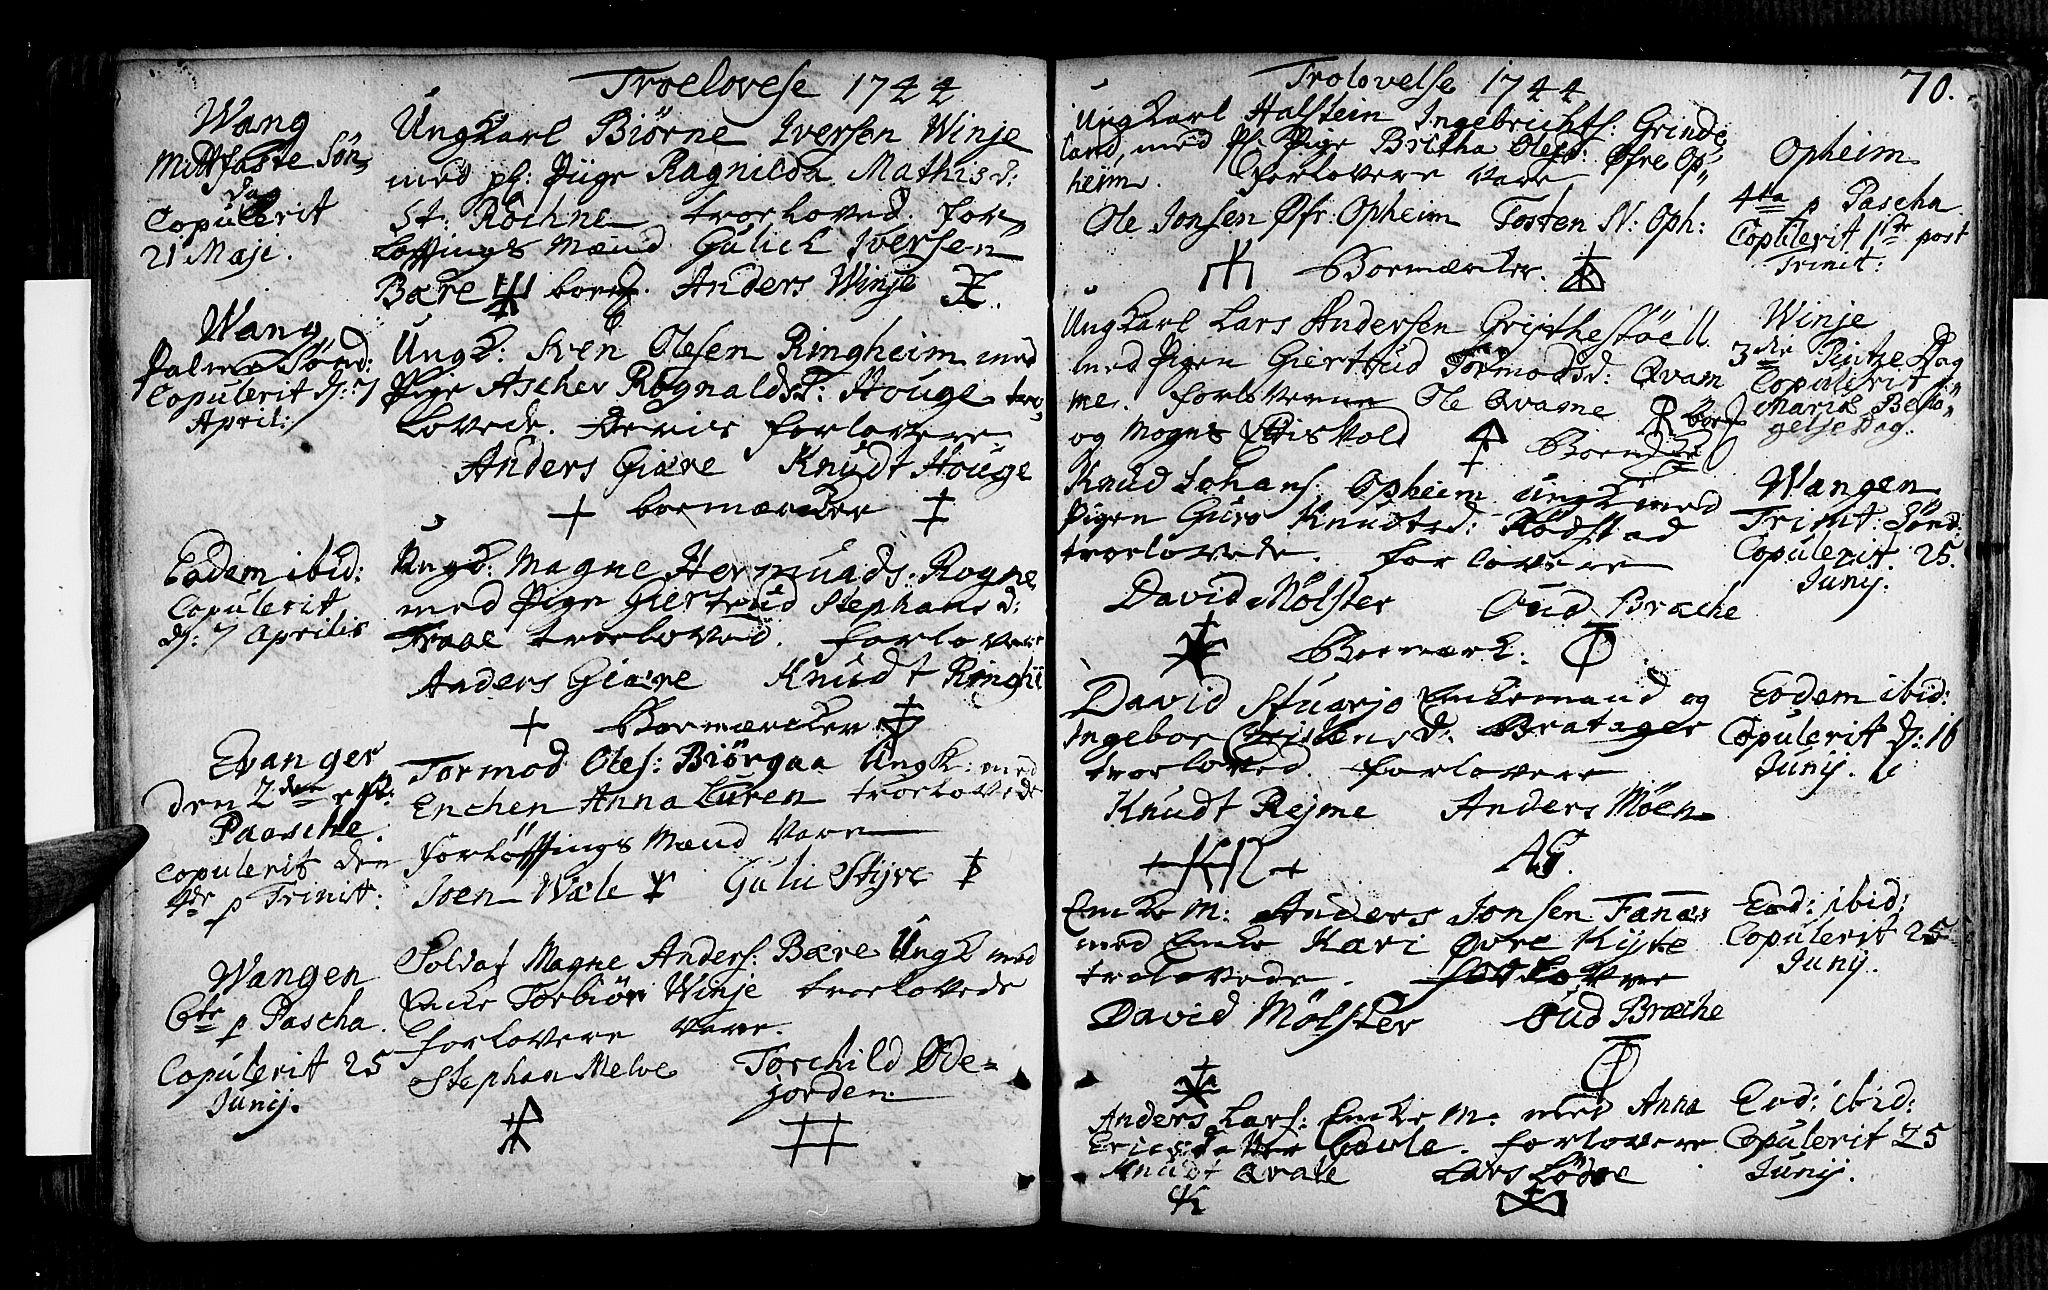 Troelovese 1744
Wang
Midtfaste Søn,,
dag
Copulerit
21 Maji.
Ungkarl Biörne Iversen Winje
med pl: Püge Ragnilda Mathisd:
St: Röthne troeloved. for,,
Löfftings Mænd Gulich Iversen
Bære bom. Anders Winje
Wang
Palme Sönd:
Copulerit d: 7
April:
Ungk: Sven Olesen Ringheim med
Pige Ascher Rognaldsd: Houge tro,,
lovede. Deris forlovere
Anders Giære Knudt Houge
boemærcker
Eodem ibid:
Copulerit
d: 7 Aprilis
Ungk: Magne Hermunds: Rogne
med Pige Giertrud Stephansd:
Traae troeloved. forlovere
Anders Giære Knudt Ringhi
Boemærcker
Evanger
den 2den eft:
Paasche.
Copulerit den
4de p Trinit:
Tormod Oles: Biörgaa Ungk: med
Enchen Anna Luren troelovede
forlöfftings Mænd Vare
Joen Wæle Gulic Styve
Wangen
6te p Pascha.
Copulerit 25
Junij.
Soldat Magne Anders: Bære Ungk med
Encke Torbiör Winje troelovede
forlovere vare.
Stephan Melve Torchild Øde-
jorden
Trolovelse 1744
70.
Ungkarl Halstein Ingebrichts: Grinde
land, med Pige Britha Olesd: Øfre Op,,
heim. forlovere vare
Ole Jonsen Øfr: Opheim Tosten N: Oph:
Boemærcker.
Opheim
4ta p Pascha
Copulerit 1ste post
Trinit:
Ungkarl Lars Andersen
med Pigen Giertrud Tormodsd: Qvam
me. forloverne Ole Qvame boem
og Mogns Ettisvold
Winje
3die Pintze Dag
Copulerit
Mariæ Besö,,
gelse Dag.
Knud Johans: Opheim ungk med
Pigen Guro Knudtsd: Rödstad
troelovede. forlovere
David Mölster Oud Bræche
Boemærk:
Wangen
Trinit: Sönd:
Copulerit. 25.
Junij.
David Stuarjo Enkemand og
Ingebor d: Bratager
troeloved. forlovere
Knudt Rejme Anders Möen
AG.
Eodem ibid:
Copulerit d: 16
Junij.
Encke M: Anders Jonsen Fanæs
med Encke Kari Øvre Kyte
trolovede. forlovere
David Mölster Oud Bræche
Eod: ibid:
Copulerit 25
Junij.
Anders Lars: Encke M: med Anna
Ericsdatter forlovere
Knudt Qvale Lars Löne
Eod: ibid:
Copulerit 25
Junij.